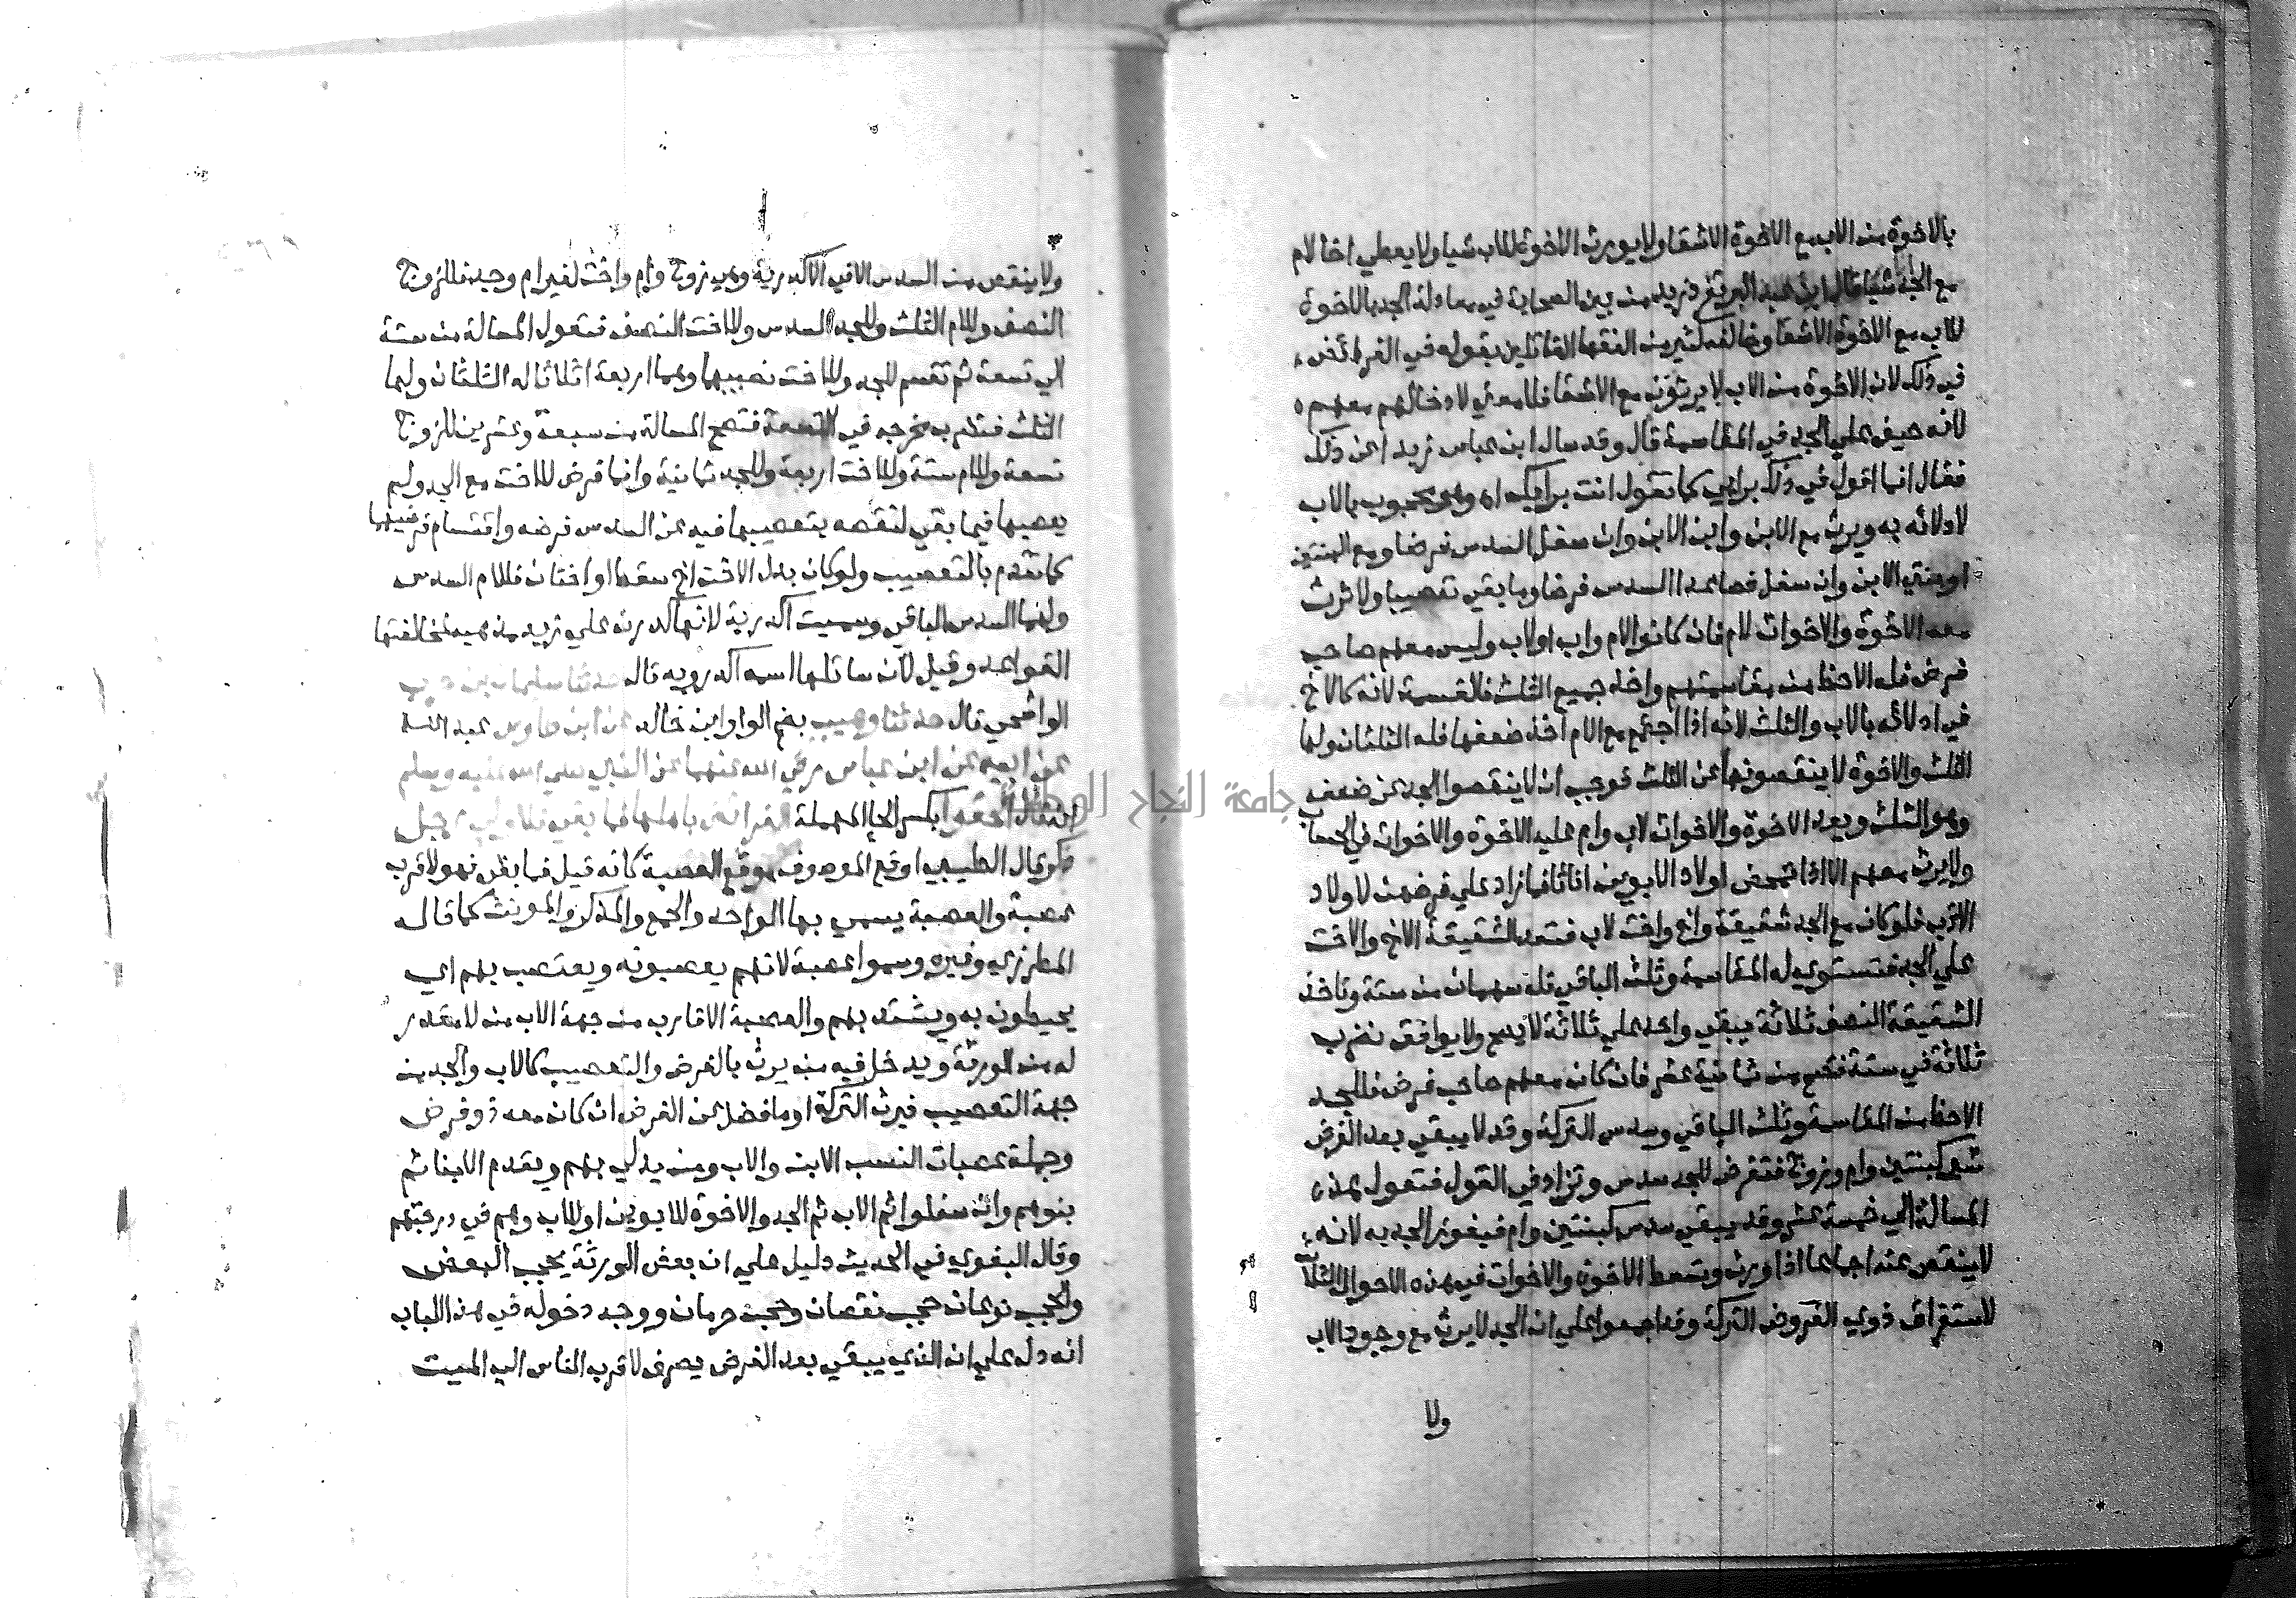 بالاخوة من الاب مع الاخوة الاشقا ولا يورث الاخوة للاب شيا ولا يعطي اخا لام
مع الجد شيا قال ابن عبد البر تفرد زيد من بين الصحابة في معادلة الجد بالاخوة
للاب مع الاخوة الاشقا وخالفه كثير من الفقها القائلين بقوله في الفرائض
في ذلك لان الاخوة من الاب لا يرثون مع الاشقا فلا معني لادخالهم معهم
لانه حيف علي الجد في المقاسمة قال وقد سال ابن عباس زيدا عن ذلك
فقال انما اقول في ذلك برايي كما تقول انت برايك اه وهو محجوب بالاب
لادلائه به ويرث مع الابن وابن الابن وان سفل السدس فرضا ومع البنتين
او بنتي الابن وان سفل فصاعدا السدس فرضا وما بقي تعصيبا ولا ترث
معه الاخوة والاخوات لام فان كانوا لام واب او لاب وليس معهم صاحب
فرض فله الاحظ من مقاسمتهم واخذ جميع الثلث فالقسمة لانه كالاخ
في ادلائه بالاب والثلث لانه اذا اجتمع مع الام اخذ ضعفها فله الثلثان ولها
الثلث والاخوة لا ينقصونها عن الثلث فوجب ان لا ينقصوا الجد عن ضعفه
وهو الثلث ويعد الاخوة والاخوات لاب وام عليه الاخوة والاخوات في الحساب
ولا يرث معهم الا اذا تمحض اولاد الابوين اناثا فما زاد علي فرضهن لاولاد
الاب فلو كان مع الجد شقيقة واخ واخت لاب فتعد الشقيقة الاخ والاخت
علي الجد فتستوي له المقاسمة وثلث الباقي فله سهمان من ستة وتاخذ
الشقيقة النصف ثلاثة يبقي واحد علي ثلاثة لا يصح ولا يوافق نضرب
ثلاثة في ستة فتصح من ثمانية عشر فان كان معهم صاحب فرض فللجد
الاحظ من المقاسمة وثلث الباقي وسدس التركة وقد لا يبقي بعد الفرض
شي كبنتين وام وزوج فتفرض للجد سدس وتزاد في العول فتعول هذه
المسالة الي خمسة عشر وقد يبقي سدس كبنتين وام فيفوز الجد به لانه
لا ينقص عنه اجماعا اذا ورث وتسقط الاخوة والاخوات في هذه الاحوال الثلاثة
لاستغراق ذوي الفروض التركة وقد اجمعوا علي ان الجد لا يرث مع وجود الاب
ولا
ولا ينقص من السدس الا في الاكدرية وهي زوج وام واخت لغير ام وجد فللزوج
النصف وللام الثلث وللجد السدس وللاخت النصف فتعول المسالة من ستة
الي تسعة ثم تقسم للجد وللاخت نصيبهما وهما اربعة اثلاثا له الثلثان ولها
الثلث فتضرب مخرجه في التسعة فتصح المسالة من سبعة وعشرين للزوج
تسعة وللام ستة وللاخت اربعة وللجد ثمانية وانما فرض للاخت مع الجد ولم
يعصبها فيما بقي لنقصه بتعصيبها فيه عن السدس فرضه واقتسام فرضيهما
كما تقدم بالتعصيب ولو كان بدل الاخت اخ سقط او اختان فللام السدس
ولهما السدس الباقي وسميت اكدرية لانها كدرت علي زيد مذهبه لمخالفتها
القواعد وقيل لان سائلها اسمه اكدر وبه قال حدثنا سليمان بن حرب
الواشحي قال حدثنا وهيب بضم الواو ابن خالد عن ابن طاوس عبد الله
عن ابيه عن ابن عباس رضي الله عنهما عن النبي صلي الله عليه وسلم
انه قال الحقوا بكسر الحا المهملة الفرائض باهلها فما بقي فلاولي رجل
ذكر قال الطيبي اوقع الموصوف موقع العصبة كانه قيل فما بقي فهو لاقرب
عصبة والعصبة يسمي بها الواحد والجمع والمذكر والمونث كما قال
المطرزي وغيره وسموا عصبة لانهم يعصبونه ويعتصب بهم اي
يحيطون به ويشتد بهم والعصبة الاقارب من جهة الاب من لا مقدر
له من الورثة ويدخل فيه من يرث بالفرض والتعصيب كالاب والجد من
جهة التعصيب فيرث التركة او ما فضل عن الفرض ان كان معه ذو فرض
وجملة عصبات النسب الابن والاب ومن يدلي بهم ويقدم الابنا ثم
بنوهم وان سفلوا ثم الاب ثم الجد والاخوة للابوين او للاب وهم في درجتهم
وقال البغوي في الحديث دليل علي ان بعض الورثة يحجب البعض
والحجب نوعان حجب نقصان وحجب حرمان ووجه دخوله في هذا الباب
انه دل علي ان الذي يبقي بعد الفرض يصرف لاقرب الناس الي الميت
جامعة النجاح الوطنية